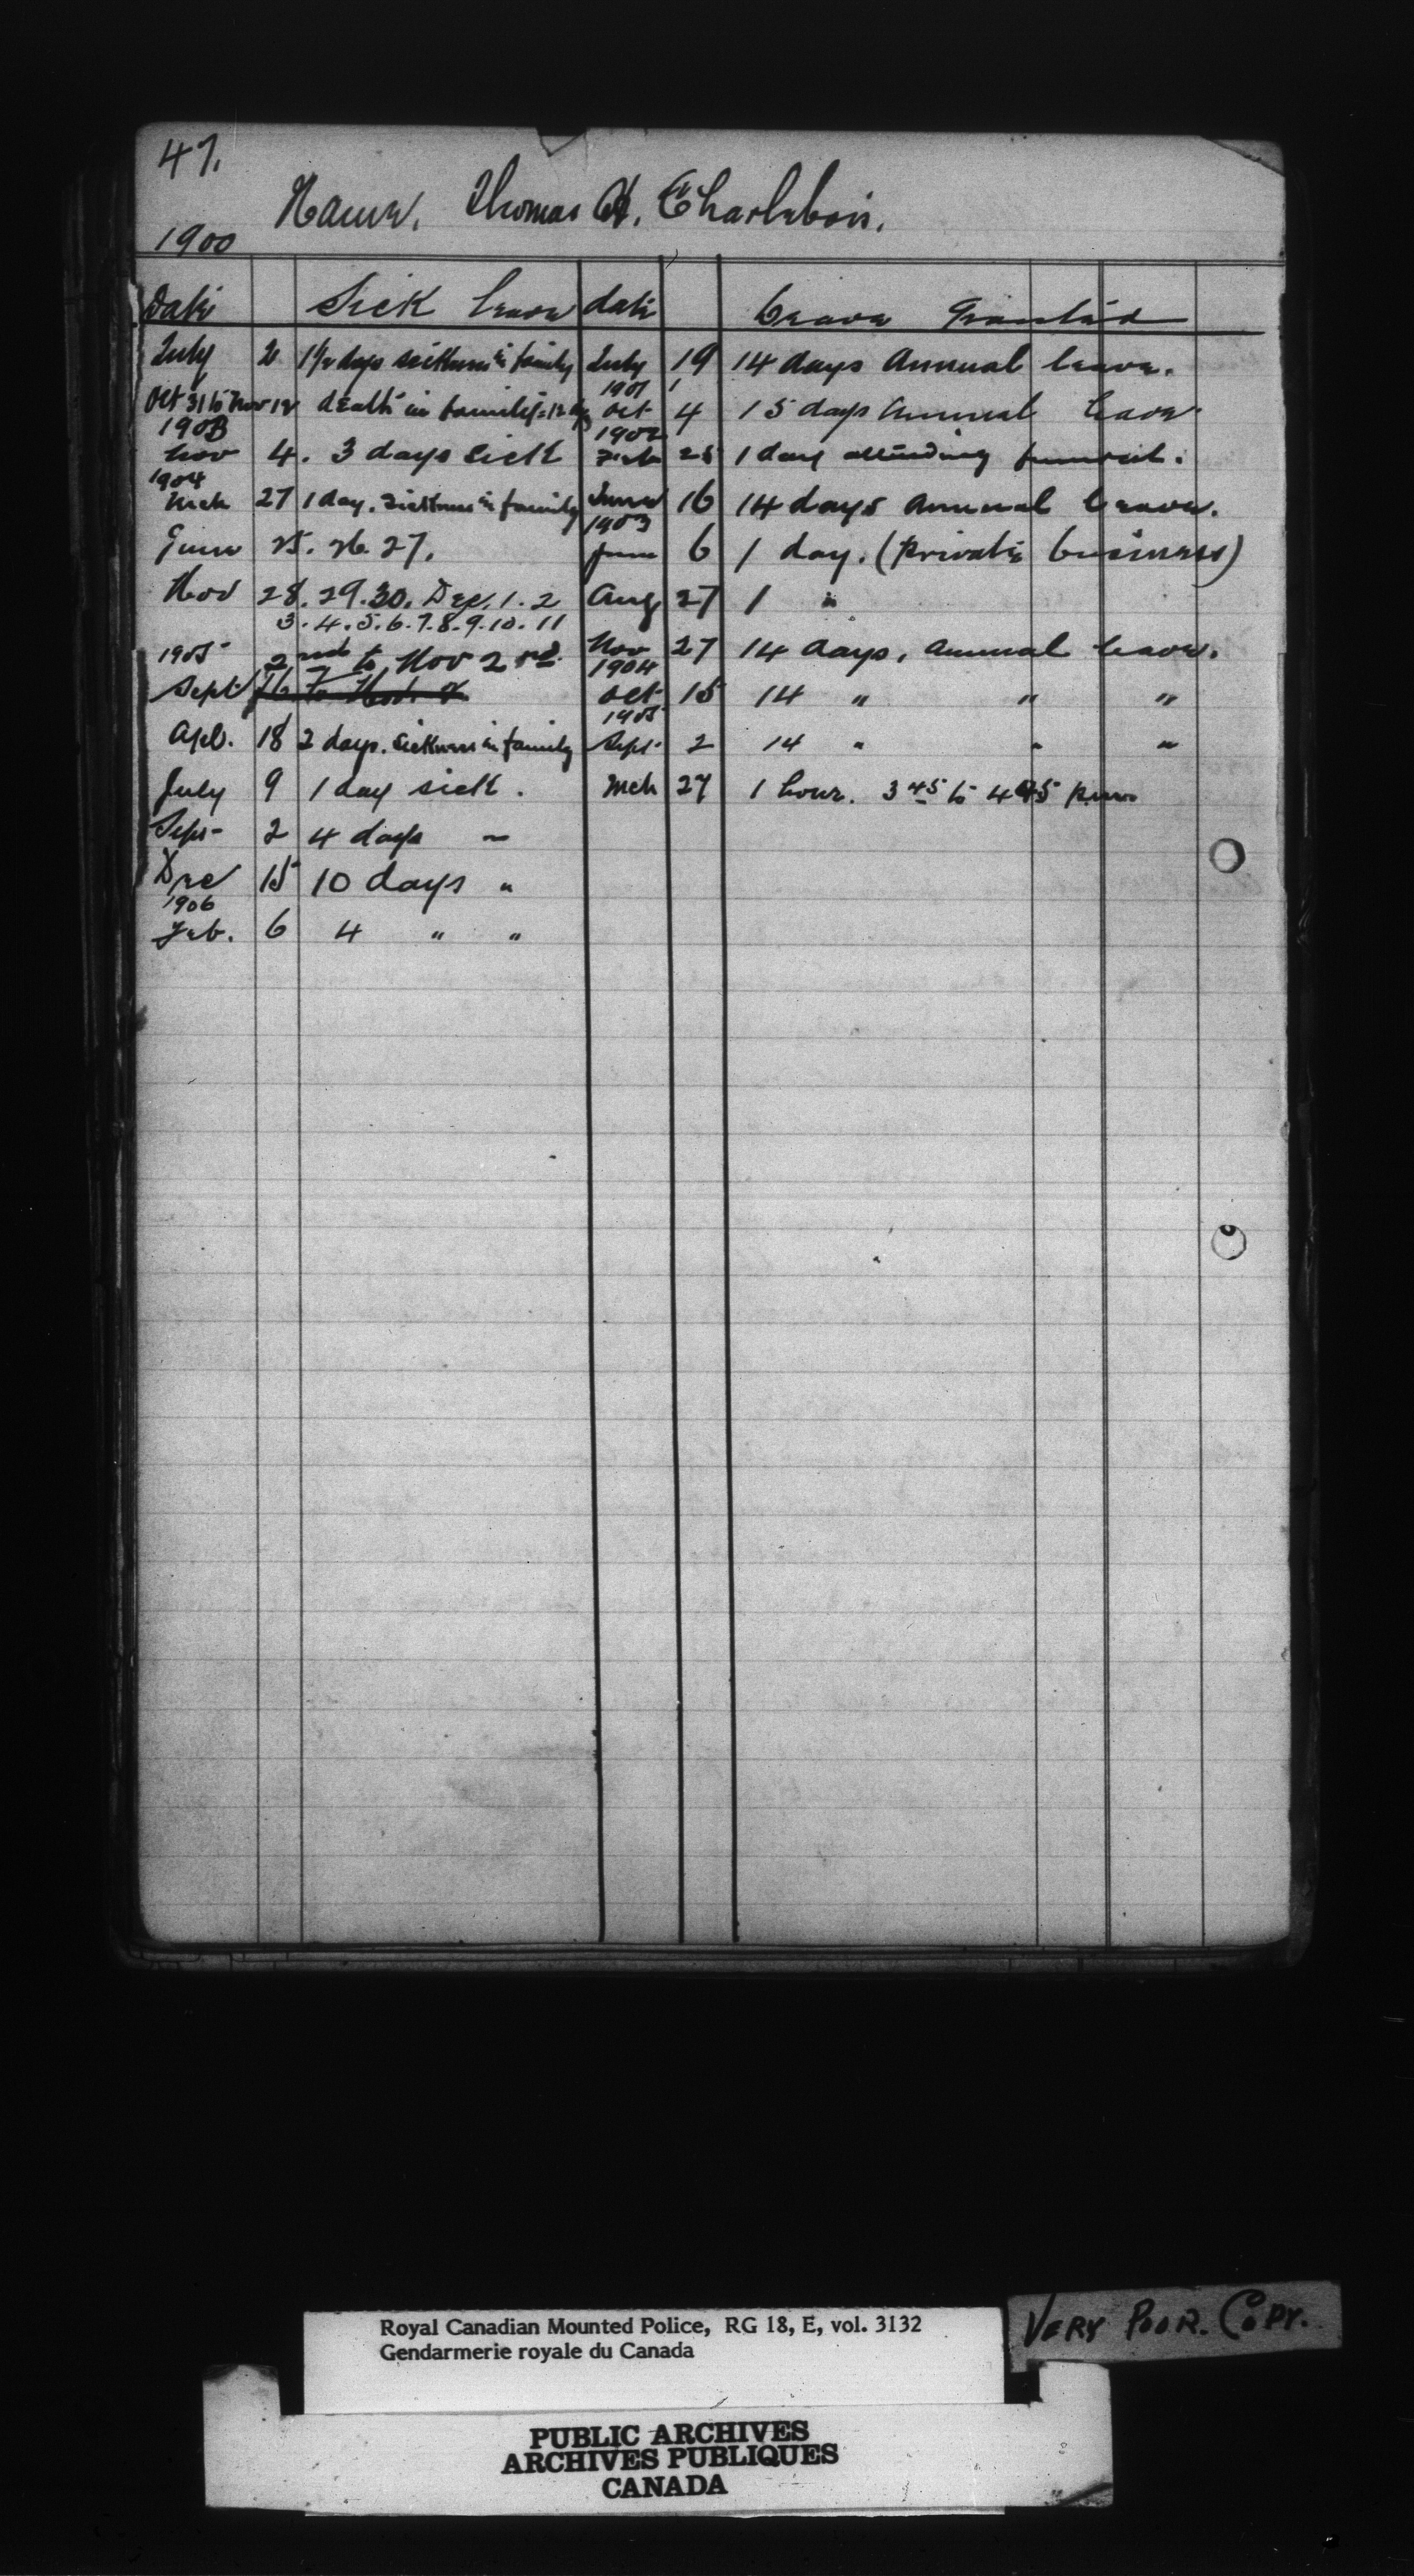 47.
Name. Thomas A. Charlebois.
1900
Date Sick Leave date Leave Granted
July 2 1½ days sickness in family July 19 14 days Annual leave.
1901
Oct 31 to Nov 12 death in family = 12 dys Oct 4 15 days Annual leave
1903 1902
Nov 4. 3 days sick Feb 25 1 day attending funeral.
1904
Mch 27 1 day. sickness in family June 16 14 days annual leave.
1903
June 25. 26. 27. June 6 1 day. (private business)
Nov 28. 29. 30. Dec. 1. 2 Aug 27 1 "
3. 4. 5. 6. 7. 8. 9. 10. 11
1905 2nd to Nov 2nd. Nov 27 14 days, annual leave.
1904
Sept 16 to Nov. 2 Oct 15 14 " " "
1905
Apl. 18 2 days. sickness in family Sept 2 14 " " "
July 9 1 day sick. Mch 27 1 hour. 3 45 to 4 45 p.m.
Sept 2 4 days "
Dec 15 10 days "
1906
Feb. 6 4 " "
Royal Canadian Mounted Police, RG 18, E, vol. 3132
Gendarmerie royale du Canada
VERY POOR. COPY.
PUBLIC ARCHIVES
ARCHIVES PUBLIQUES
CANADA